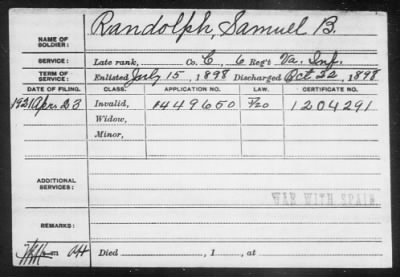 NAME OF SOLDIER: Randolph, Samuel B.
SERVICE: Late rank, Co. C, 6 Reg't Va. Inf.
TERM OF SERVICE: Enlisted July 15, 1898 Discharged Oct. 22, 1898
DATE OF FILING. CLASS. APPLICATION NO. LAW. CERTIFICATE NO.
1921 Apr. 23 Invalid, 1449650 1204291
Widow,
Minor,
ADDITIONAL SERVICES:
WAR WITH SPAIN
REMARKS:
Died , 1 , at